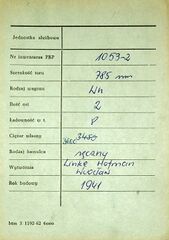 Jednostka służbowa
Nr inwentarza PKP 1053-2
Szerokość toru 785 mm
Rodzaj wagonu Wh
Ilość osi 2
Ładowność w t. 8
Ciężar własny 3450
Rodzaj hamulca ręczny
Wytwórnia Linke Hofman
Wrocław
Rok budowy 1941